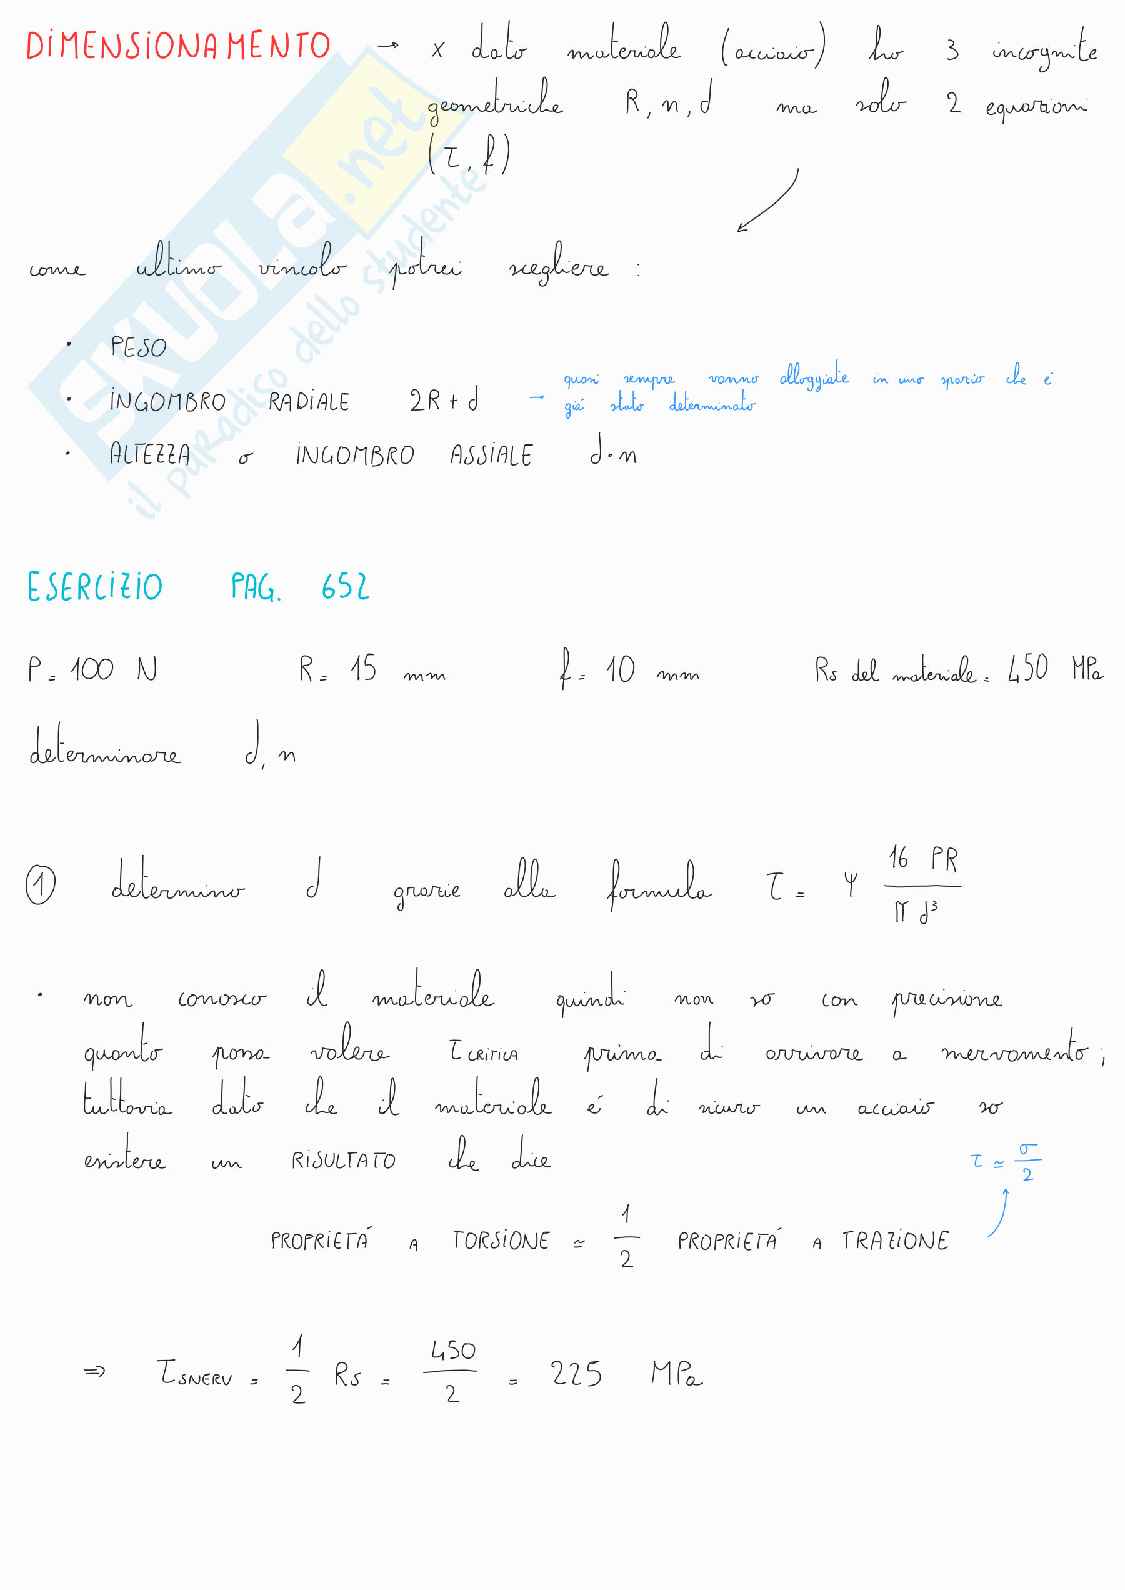 DIMENSIONAMENTO → x dato materiale (acciaio) ho 3 incognite
geometriche R, n, d ma solo 2 equazioni
(τ, f)
come ultimo vincolo potrei scegliere :
· PESO
· INGOMBRO RADIALE 2R + d → quasi sempre vanno alloggiate in uno spazio che è
già stato determinato
· ALTEZZA o INGOMBRO ASSIALE d·n
SKUOLA.net
il paradiso dello studente
ESERCIZIO PAG. 652
P = 100 N R = 15 mm f = 10 mm Rs del materiale = 450 MPa
determinare d, n
① determino d grazie alla formula τ = ψ 16 PR / π d³
· non conosco il materiale quindi non so con precisione
quanto possa valere τ CRITICA prima di arrivare a snervamento ;
tuttavia dato che il materiale é di sicuro un acciaio so
esistere un RISULTATO che dice τ ≃ σ / 2
PROPRIETÁ A TORSIONE ≃ 1 / 2 PROPRIETÁ A TRAZIONE
⇒ τ SNERV = 1 / 2 Rs = 450 / 2 = 225 MPa